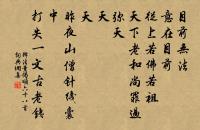 目前無法
意在目前
從上若佛若祖
天下老和尚罪過
彌天
天天
昨夜山僧針綫囊
中
打失一文古老錢